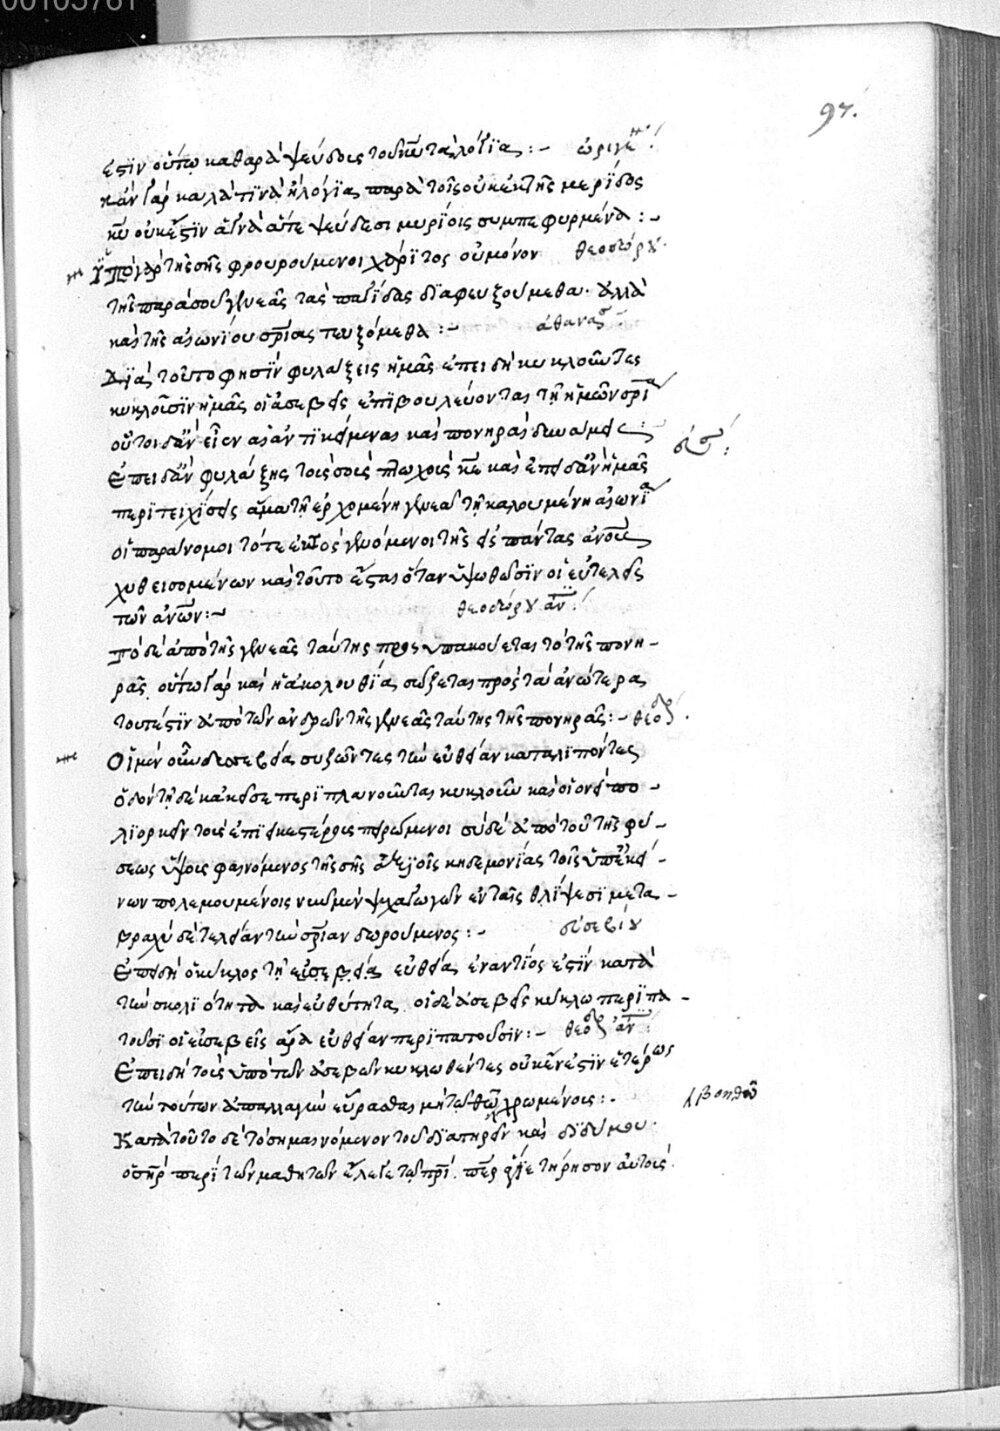 97.
ἐστὶν οὕτω καθαρὰ ψεύδους τοῦ κυ τὰ λόγια :- ὠριγέν
κἂν γὰρ καλά τινα ᾖ λόγια παρὰ τοῖς οὐκ ἐκ τῆς μερίδος
κυ οὐκ ἔστιν ἁγνὰ ἅτε ψεύδεσι μυρίοις συμπεφυρμένα :-
Ὑπὸ γὰρ τῆς σῆς φρουρούμενοι χάριτος οὐ μόνον θεοδώρου
τῆς παρὰ σου γενεᾶς τὰς παγίδας διαφευξούμεθα. ἀλλὰ
καὶ τῆς αἰωνίου σρίας τευξόμεθα :- ἀθανασ
Διὰ τοῦτο φησὶν φυλάξεις ἡμᾶς ἐπειδὴ κυκλοῦντες
κυκλοῦσιν ἡμᾶς οἱ ἀσεβεῖς ἐπιβουλεύοντας τῇ ἡμῶν σρία
οὗτοι δ' ἂν εἶεν αἱ ἀντικείμεναι καὶ πονηραὶ δυνάμεις :-
Ἐπειδὰν φυλάξῃς τοὺς σοὺς πτωχοὺς κε καὶ ἐπειδὰν ἡμᾶς
περιτειχίσεις ἅμα τῇ ἐρχομένῃ γενεᾷ τῇ καλουμένῃ αἰωνία
οἱ παράνομοι τότε ἐκτὸς γενόμενοι τῆς εἰς πάντας ἀνους
χυθεισομένων καὶ τοῦτο ἔσται ὅταν ὑψωθῶσιν οἱ εὐτελεῖς
τῶν ἀνων :- θεοδώρου ἀν
τὸ δὲ ἀπὸ τῆς γενεᾶς ταύτης προσυπακούεται τὸ τῆς πονη-
ρᾶς. οὕτω γὰρ καὶ ἡ ἀκολουθία σώζεται πρὸς τὰ ἀνώτερα
τουτέστιν ἀπὸ τῶν ἀνδρῶν τῆς γενεᾶς ταύτης τῆς πονηρᾶς :- θεοδ
Οἱ μὲν οὖν δυσσεβείᾳ συζῶντες τὴν εὐθεῖαν καταλιπόντες
ὁδὸν τῇδε κἀκεῖσε περιπλανοῦνται κυκλοῦν καὶ οἱονεὶ πο-
λιορκεῖν τοὺς ἐπιεικεστέρους πειρώμενοι σὺ δὲ ἀπὸ τοῦ τῆς φύ-
σεως ὕψους φαινόμενος τῆς σῆς ἀξιοῖς κηδεμονίας τοὺς ὑπ' ἐκεί-
νων πολεμουμένους νῦν μὲν ψυχαγωγῶν ἐν ταῖς θλίψεσι μετα-
βραχὺ δὲ τελείαν τὴν σρίαν δωρούμενος :- εὐσεβίου
Ἐπειδὴ ὁ κύκλος τῇ εὐσεβείᾳ εὐθείᾳ ἐναντίος ἐστὶν κατὰ
τὴν σκολιότητα καὶ εὐθύτητα. οἱ δὲ ἀσεβεῖς κύκλῳ περιπα-
τοῦσι οἱ εὐσεβεῖς ἄρα εὐθεῖαν περιπατοῦσιν :- θεοδ ἀν
Ἐπειδὴ τοὺς ὑπὸ τῶν ἀσεβῶν κυκλωθέντας οὐκ ἦν ἐστὶν ἑτέρως
τὴν τούτων ἀπαλλαγὴν εὕρασθαι μὴ τῶ θῶ χρωμένους :- βοηθῷ
Κατὰ τοῦτο δὲ τὸ σημαινόμενον τοῦ διατηρεῖν καὶ διδύμου
ὁ σηρ περὶ τῶν μαθητῶν ἔλεγε τῶ πρι. περ ἅγιε τήρησον αὐτοὺς